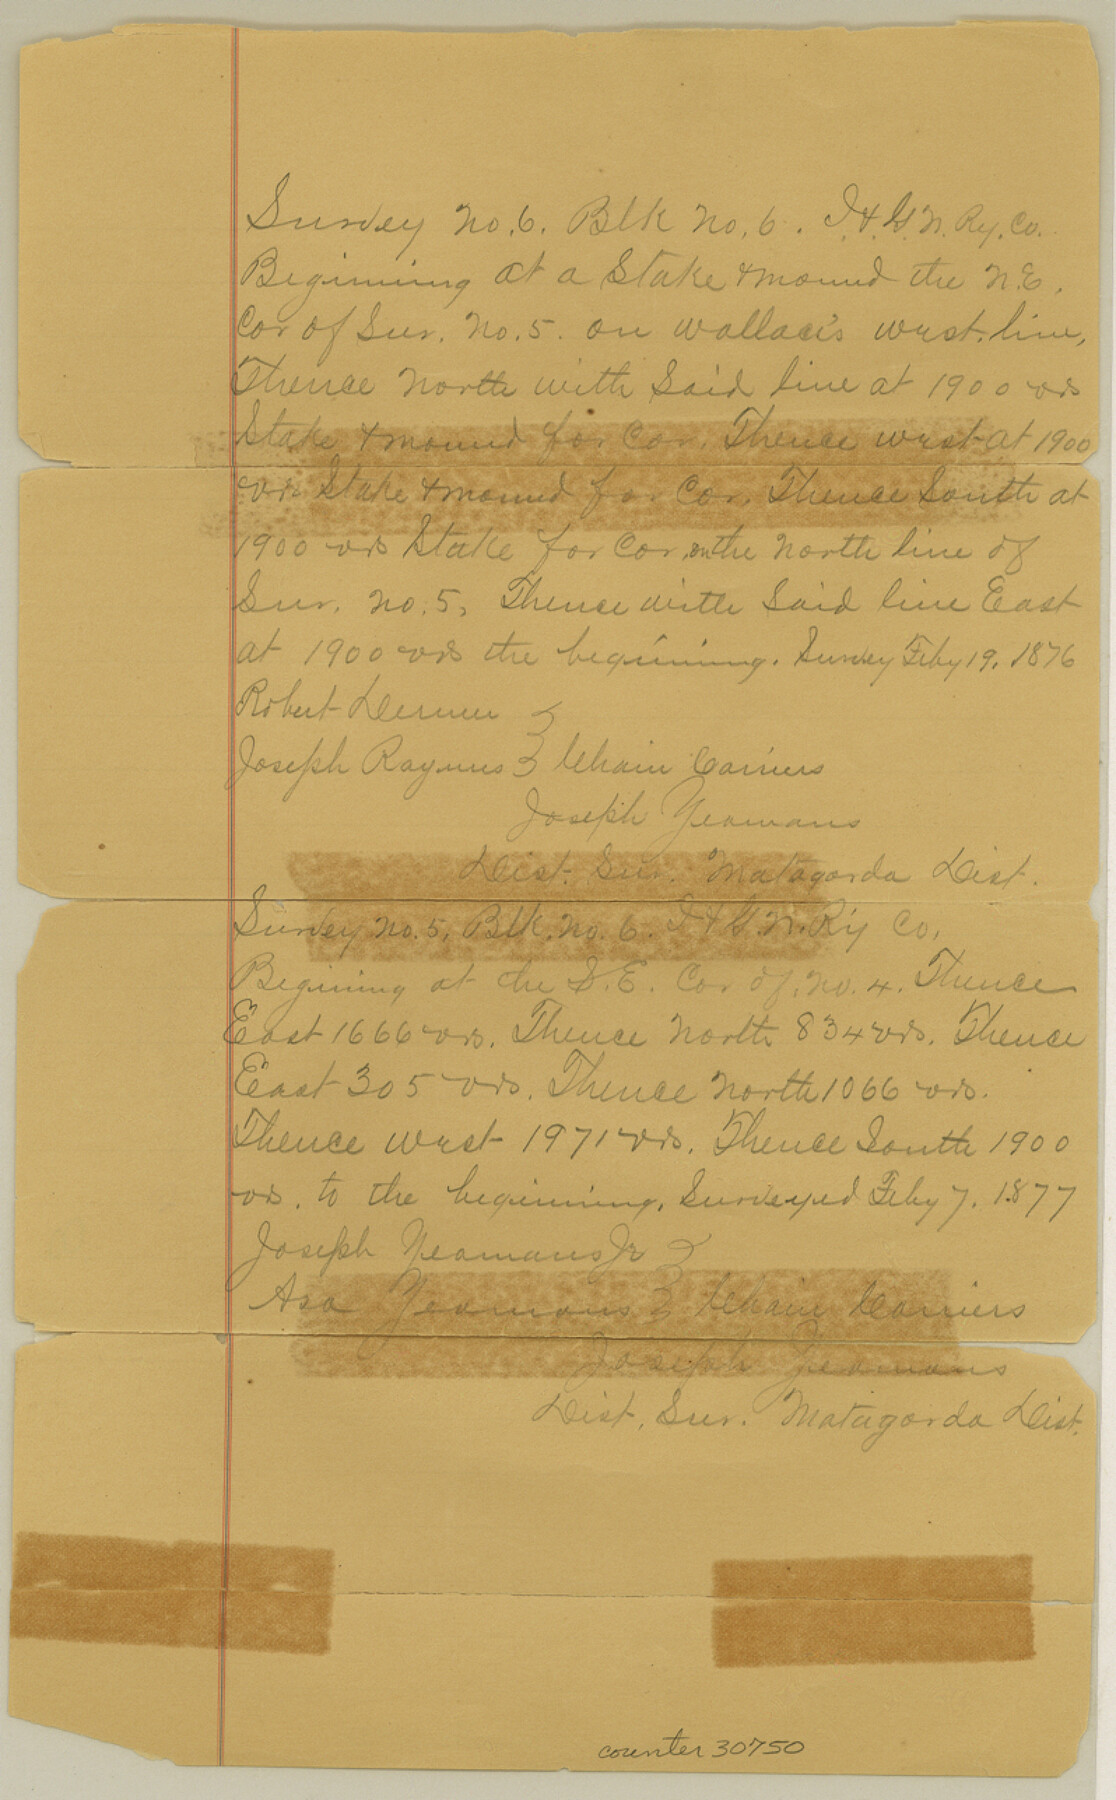 Survey No. 6. Blk No. 6. I. & G. N. Ry. Co.
Beginning at a Stake & mound the N.E.
Cor of Sur. No. 5. on Wallace's west line,
Thence North with Said line at 1900 vrs
Stake & mound for Cor. Thence west at 1900
vrs Stake & mound for Cor. Thence South at
1900 vrs Stake for Cor. on the North line of
Sur. No. 5, Thence with Said line East
at 1900 vrs the beginning. Survey Feby 19, 1876
Robert
Joseph Chain Carriers
Joseph Yeamans
Dist. Sur. Matagorda Dist.
Survey No. 5, Blk. No. 6. I & G. N. Ry Co,
Begining at the S.E. Cor of. No. 4. Thence
East 1666 vrs. Thence North 834 vrs. Thence
East 305 vrs. Thence North 1066 vrs.
Thence west 1971 vrs. Thence South 1900
vrs. to the beginning. Surveyed Feby 7. 1877
Joseph Yeamans Jr
Asa Yeamans Chain Carriers
Joseph Yeamans
Dist. Sur. Matagorda Dist.
counter 30750